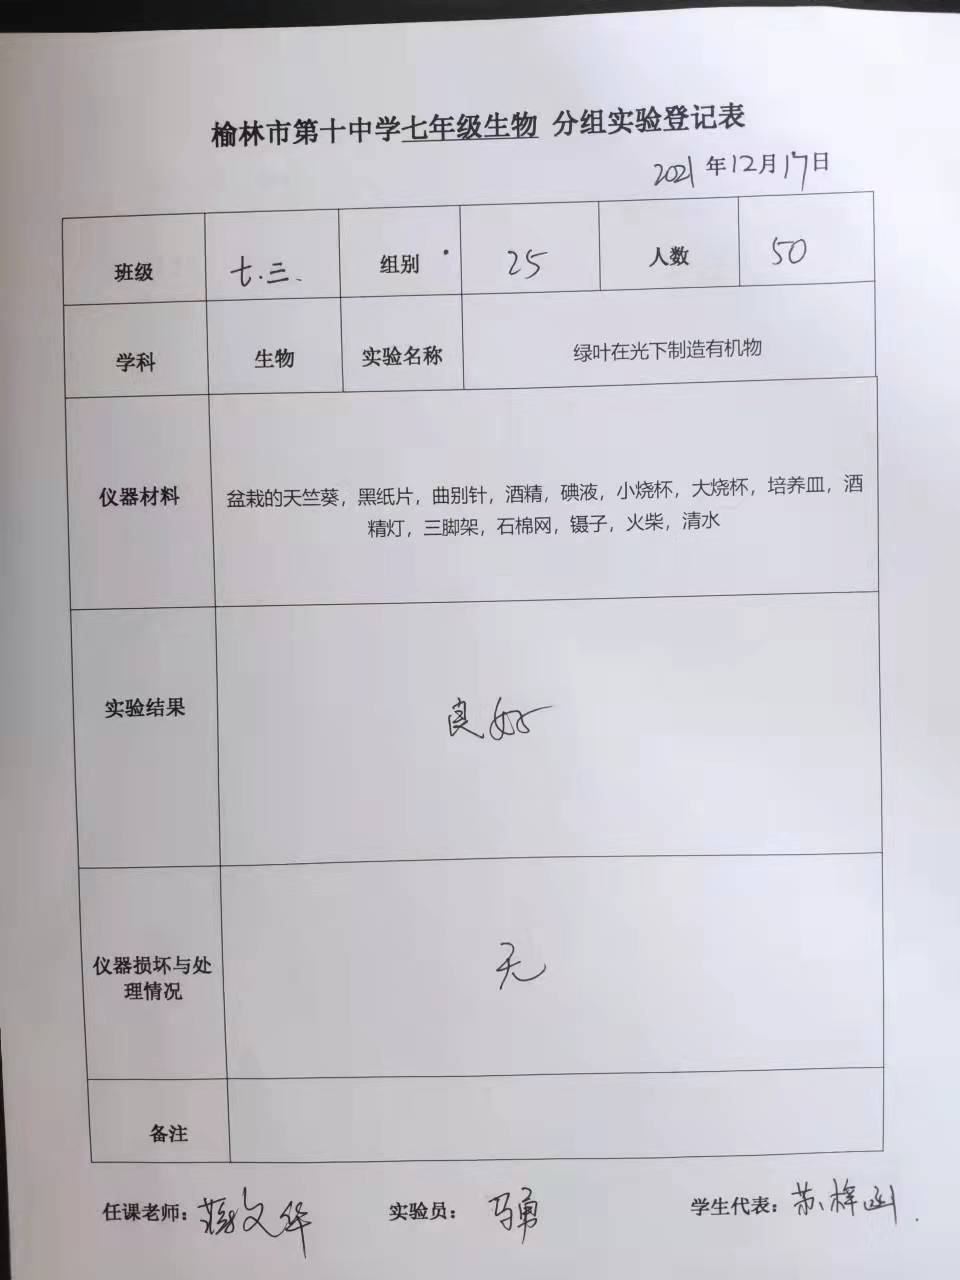 榆林市第十中学七年级生物 分组实验登记表
2021年12月17日
班级 七.三. 组别 25 人数 50
学科 生物 实验名称 绿叶在光下制造有机物
仪器材料
盆栽的天竺葵，黑纸片，曲别针，酒精，碘液，小烧杯，大烧杯，培养皿，酒
精灯，三脚架，石棉网，镊子，火柴，清水
实验结果 良好
仪器损坏与处
理情况
无
备注
任课老师：蒋文华 实验员：马勇 学生代表：苏梓函